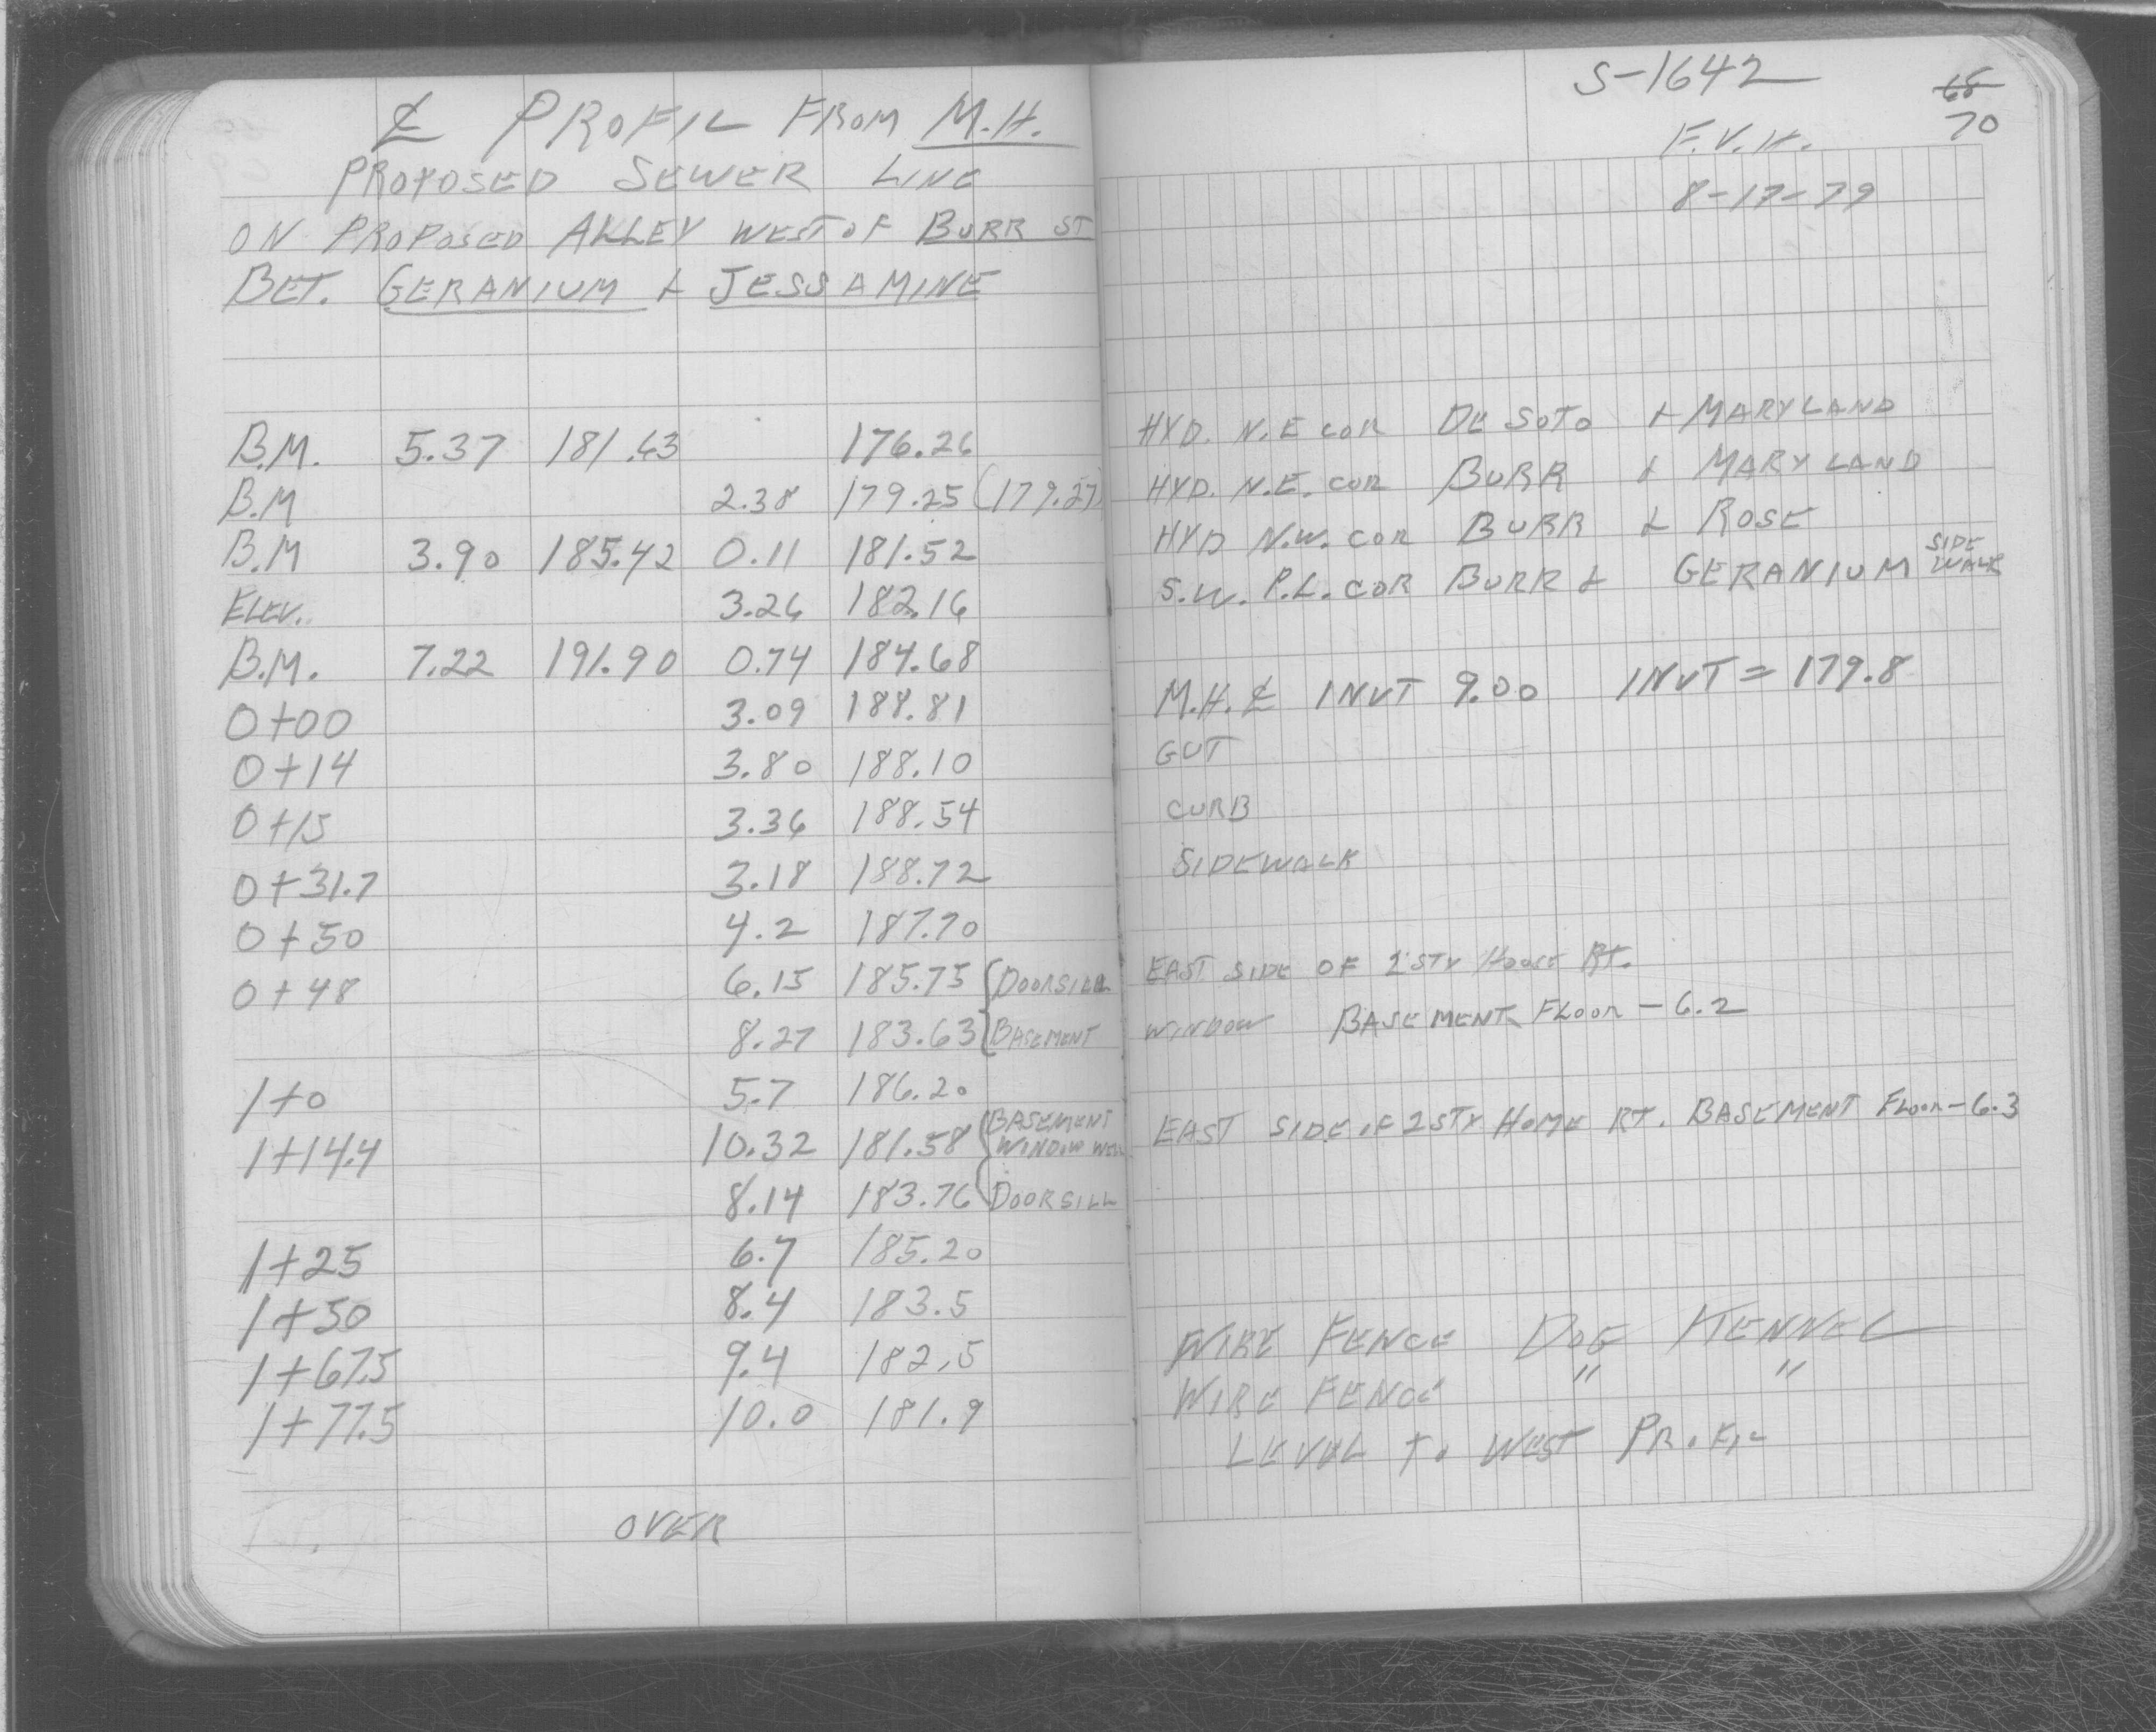 ℄ PROFIL FROM M.H.
PROPOSED SEWER LINE
ON PROPOSED ALLEY WEST OF BURR ST
BET. GERANIUM & JESSAMINE
B.M. 5.37 181.63 176.26
B.M 2.38 179.25 (179.27)
B.M 3.90 185.42 0.11 181.52
ELEV. 3.26 182.16
B.M. 7.22 191.90 0.74 184.68
0+00 3.09 188.81
0+14 3.80 188.10
0+15 3.36 188.54
0+31.7 3.18 188.72
0+50 4.2 187.70
0+48 6.15 185.75 DOORSILL
8.27 183.63 BASEMENT
1+0 5.7 186.20
1+14.4 10.32 181.58 BASEMENT WINDOW WELL
8.14 183.76 DOORSILL
1+25 6.7 185.20
1+50 8.4 183.5
1+67.5 9.4 182.5
1+77.5 10.0 181.9
OVER
S-1642
68
70
F.V.H.
8-17-79
HYD. N.E COR DE SOTO & MARYLAND
HYD. N.E. COR BURR & MARYLAND
HYD N.W. COR BURR & ROSE
S.W. P.L. COR BURR & GERANIUM SIDE WALK
M.H. ℄ INVT 9.00 INVT = 179.8
GUT
CURB
SIDEWALK
EAST SIDE OF 2 STY HOUSE RT.
WINDOW BASEMENT FLOOR - 6.2
EAST SIDE OF 2 STY HOME RT. BASEMENT FLOOR - 6.3
WIRE FENCE DOG KENNEL
WIRE FENCE " "
LEVEL TO WEST